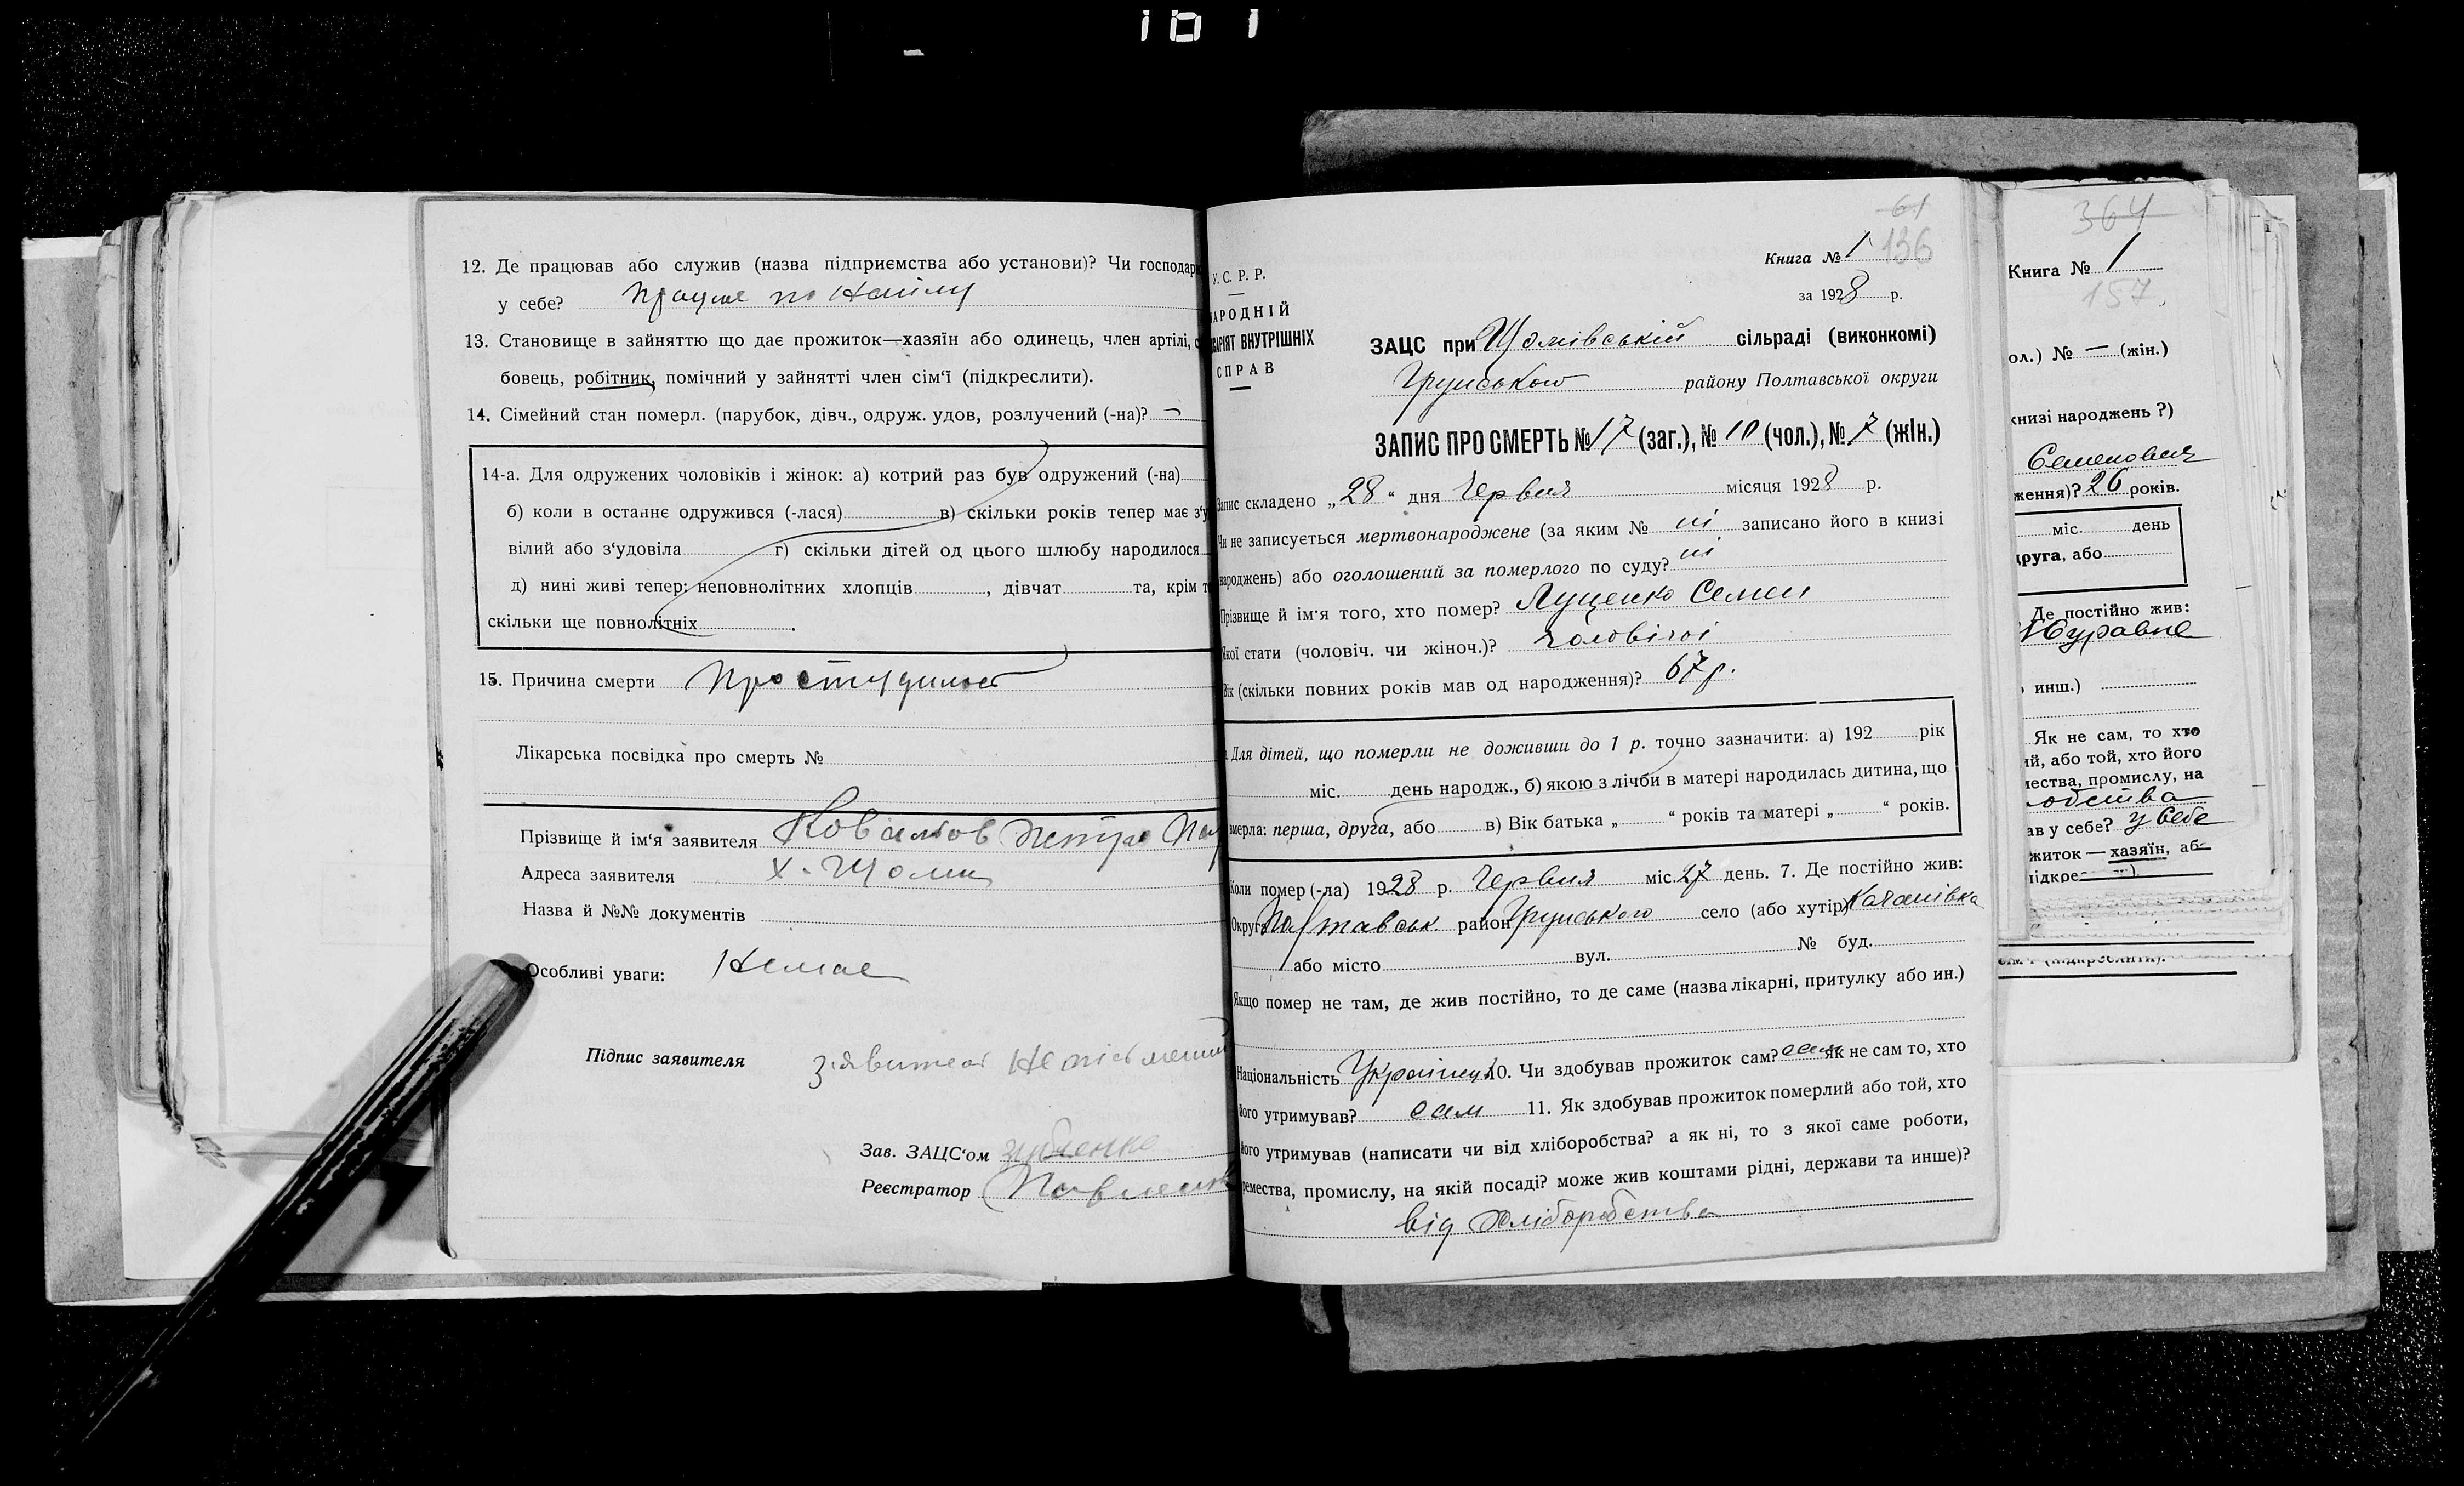 12. Де працював або служив (назва підприємства або установи)? Чи господар
у себе? працює по найму
13. Становище в зайняттю що дає прожиток—хазяїн або одинець, член артілі,
бовець, робітник, помічний у зайнятті член сім'ї (підкреслити).
14. Сімейний стан померл. (парубок, дівч., одруж. удов, розлучений (-на)? —
14-а. Для одружених чоловіків і жінок: а) котрий раз був одружений (-на)
б) коли в останнє одружився (-лася) в) скільки років тепер має з'у
вілий або з'удовіла г) скільки дітей од цього шлюбу народилося
д) нині живі тепер: неповнолітних хлопців , дівчат та, крім т
скільки ще повнолітніх .
15. Причина смерти
Лікарська посвідка про смерть №
Прізвище й ім'я заявителя Ковальов Петро
Адреса заявителя х. Шоми
Назва й №№ документів
Особливі уваги: Немає
Підпис заявителя заявитель неписьменний
Зав. ЗАЦС'ом
Реєстратор Павленко
61
136
Книга № 1
за 1928 р.
У.С.Р.Р.
АРОДНІЙ
САРІЯТ ВНУТРІШНІХ
СПРАВ
ЗАЦС при Шомівській сільраді (виконкомі)
Грунського району Полтавської округи
ЗАПИС ПРО СМЕРТЬ № 17 (заг.), № 10 (чол.), № 7 (жін.)
Запис складено „28“ дня Червня місяця 1928 р.
Чи не записується мертвонароджене (за яким № ні записано його в книзі
народжень) або оголошений за померлого по суду? ні
Прізвище й ім'я того, хто помер? Луценко Семен
Якої стати (чоловіч. чи жіноч.)? чоловічої
Вік (скільки повних років мав од народження)? 67 р.
Для дітей, що померли не доживши до 1 р. точно зазначити: а) 192 рік
міс. день народж., б) якою з лічби в матері народилась дитина, що
вмерла: перша, друга, або в) Вік батька „ “ років та матері „ “ років.
Коли помер (-ла) 1928 р. Червня міс. 27 день. 7. Де постійно жив:
Округа Полтавськ. район Грунського село (або хутір) Качанівка
або місто вул. № буд.
Якщо помер не там, де жив постійно, то де саме (назва лікарні, притулку або ин.)
Національність Українець 10. Чи здобував прожиток сам? сам як не сам то, хто
його утримував? сам 11. Як здобував прожиток померлий або той, хто
його утримував (написати чи від хліборобства? а як ні, то з якої саме роботи,
ремества, промислу, на якій посаді? може жив коштами рідні, держави та инше)?
від хліборобства
364
Книга № 1
157
ол.) № — (жін.)
книзі народжень?)
Семенович
ження)? 26 років.
міс. день
друга, або
Де постійно жив:
Журавне
инш.)
Як не сам, то хто
ий, або той, хто його
мества, промислу, на
обства
ав у себе? у себе
житок — хазяїн, аб
ідкре